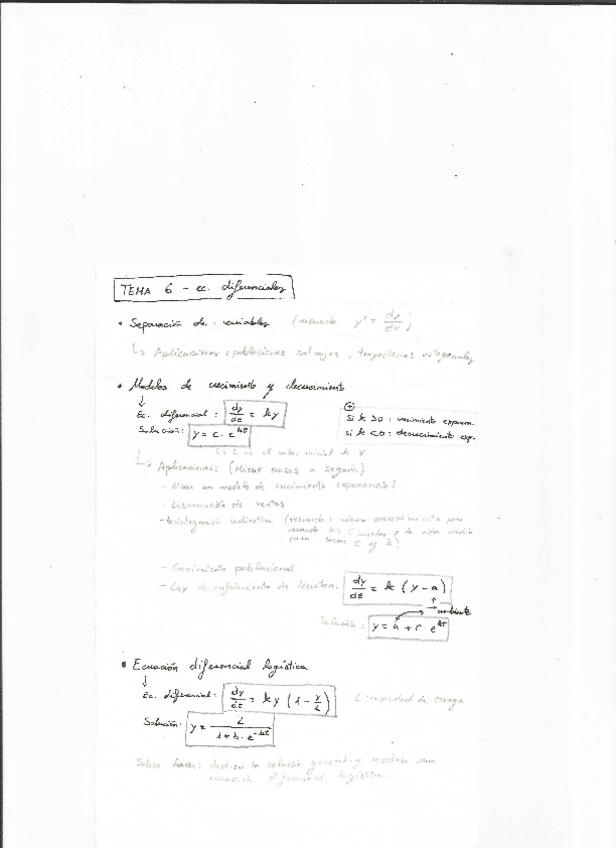 TEMA 6 - ec. diferenciales
• Separación de variables (recuerda y' = dy/dx)
↳ Aplicaciones: poblaciones salvajes, trayectorias ortogonales
• Modelos de crecimiento y decrecimiento
↓
Ec. diferencial: dy/dt = ky
Solución: y = C · e^kt
⊕
Si k > 0: crecimiento exponen.
si k < 0: decrecimiento exp.
↳ C es el valor inicial de y
↳ Aplicaciones: (Mirar pasos a seguir)
- Usar un modelo de crecimiento exponencial
- Disminución de ventas
- Desintegración radiactiva (recuerda: mismo procedimiento para
y la vida media
para sacar C y k)
- Crecimiento poblacional
- Ley de enfriamiento de Newton. dy/dt = k (y - a)
↑
→ ambiente
Solución: y = a + C e^kt
• Ecuación diferencial logística
↓
Ec. diferencial: dy/dt = ky (1 - y/L) L: capacidad de carga
Solución: y = L / 1 + b · e^-kt
Saber hacer: deducir la solución general y resolver una
ecuación diferencial logística.